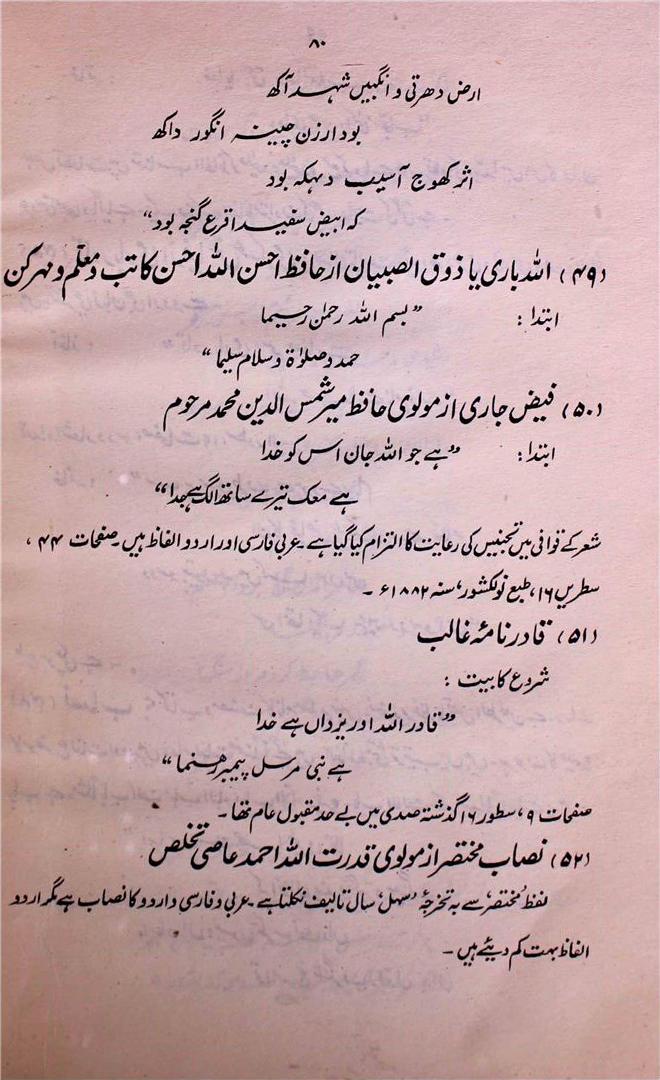 ۸۰
ارض دھرتی و انگبیں شہد آکھ
بود ارزن چینہ انگور داکھ
اثر کھوج آسیب دہکہ بود
کہ ابیض سفید اقرع گنجہ بود“
(۴۹) اللہ باری یا ذوق الصبیان از حافظ احسن اللہ احسن کاتب و معلّم و نہرکن
ابتدا: ”بسم اللہ رحمٰن رحیما
حمد و صلوٰۃ و سلام سلیما“
(۵۰) فیض جاری از مولوی حافظ میر شمس الدین محمد مرحوم
ابتدا: ”ہے جو اللہ جان اس کو خدا
ہے معک تیرے ساتھ الگ ہیجدا“
شعر کے قوافی میں تجنیس کی رعایت کا التزام کیا گیا ہے ۔ عربی فارسی اور اردو الفاظ ہیں ۔ صفحات ۴۴ ،
سطریں ۱۶، طبع نولکشور، سنہ ۱۸۸۲ء ۔
(۵۱) قادر نامۂ غالب
شروع کا بیت :
”قادر اللہ اور یزداں ہے خدا
ہے نبی مرسل پیمبر رہنما“
صفحات ۹، سطور ۱۶ گذشتہ صدی میں بے حد مقبول عام تھا ۔
(۵۲) نصاب مختصر از مولوی قدرت اللہ احمد عاصی تخلص
لفظ ’مختصر‘ سے بہ تخرجۂ ’سہل‘ سال تالیف نکلتا ہے ۔ عربی و فارسی و اردو کا نصاب ہے مگر اردو
الفاظ بہت کم دیئے ہیں ۔